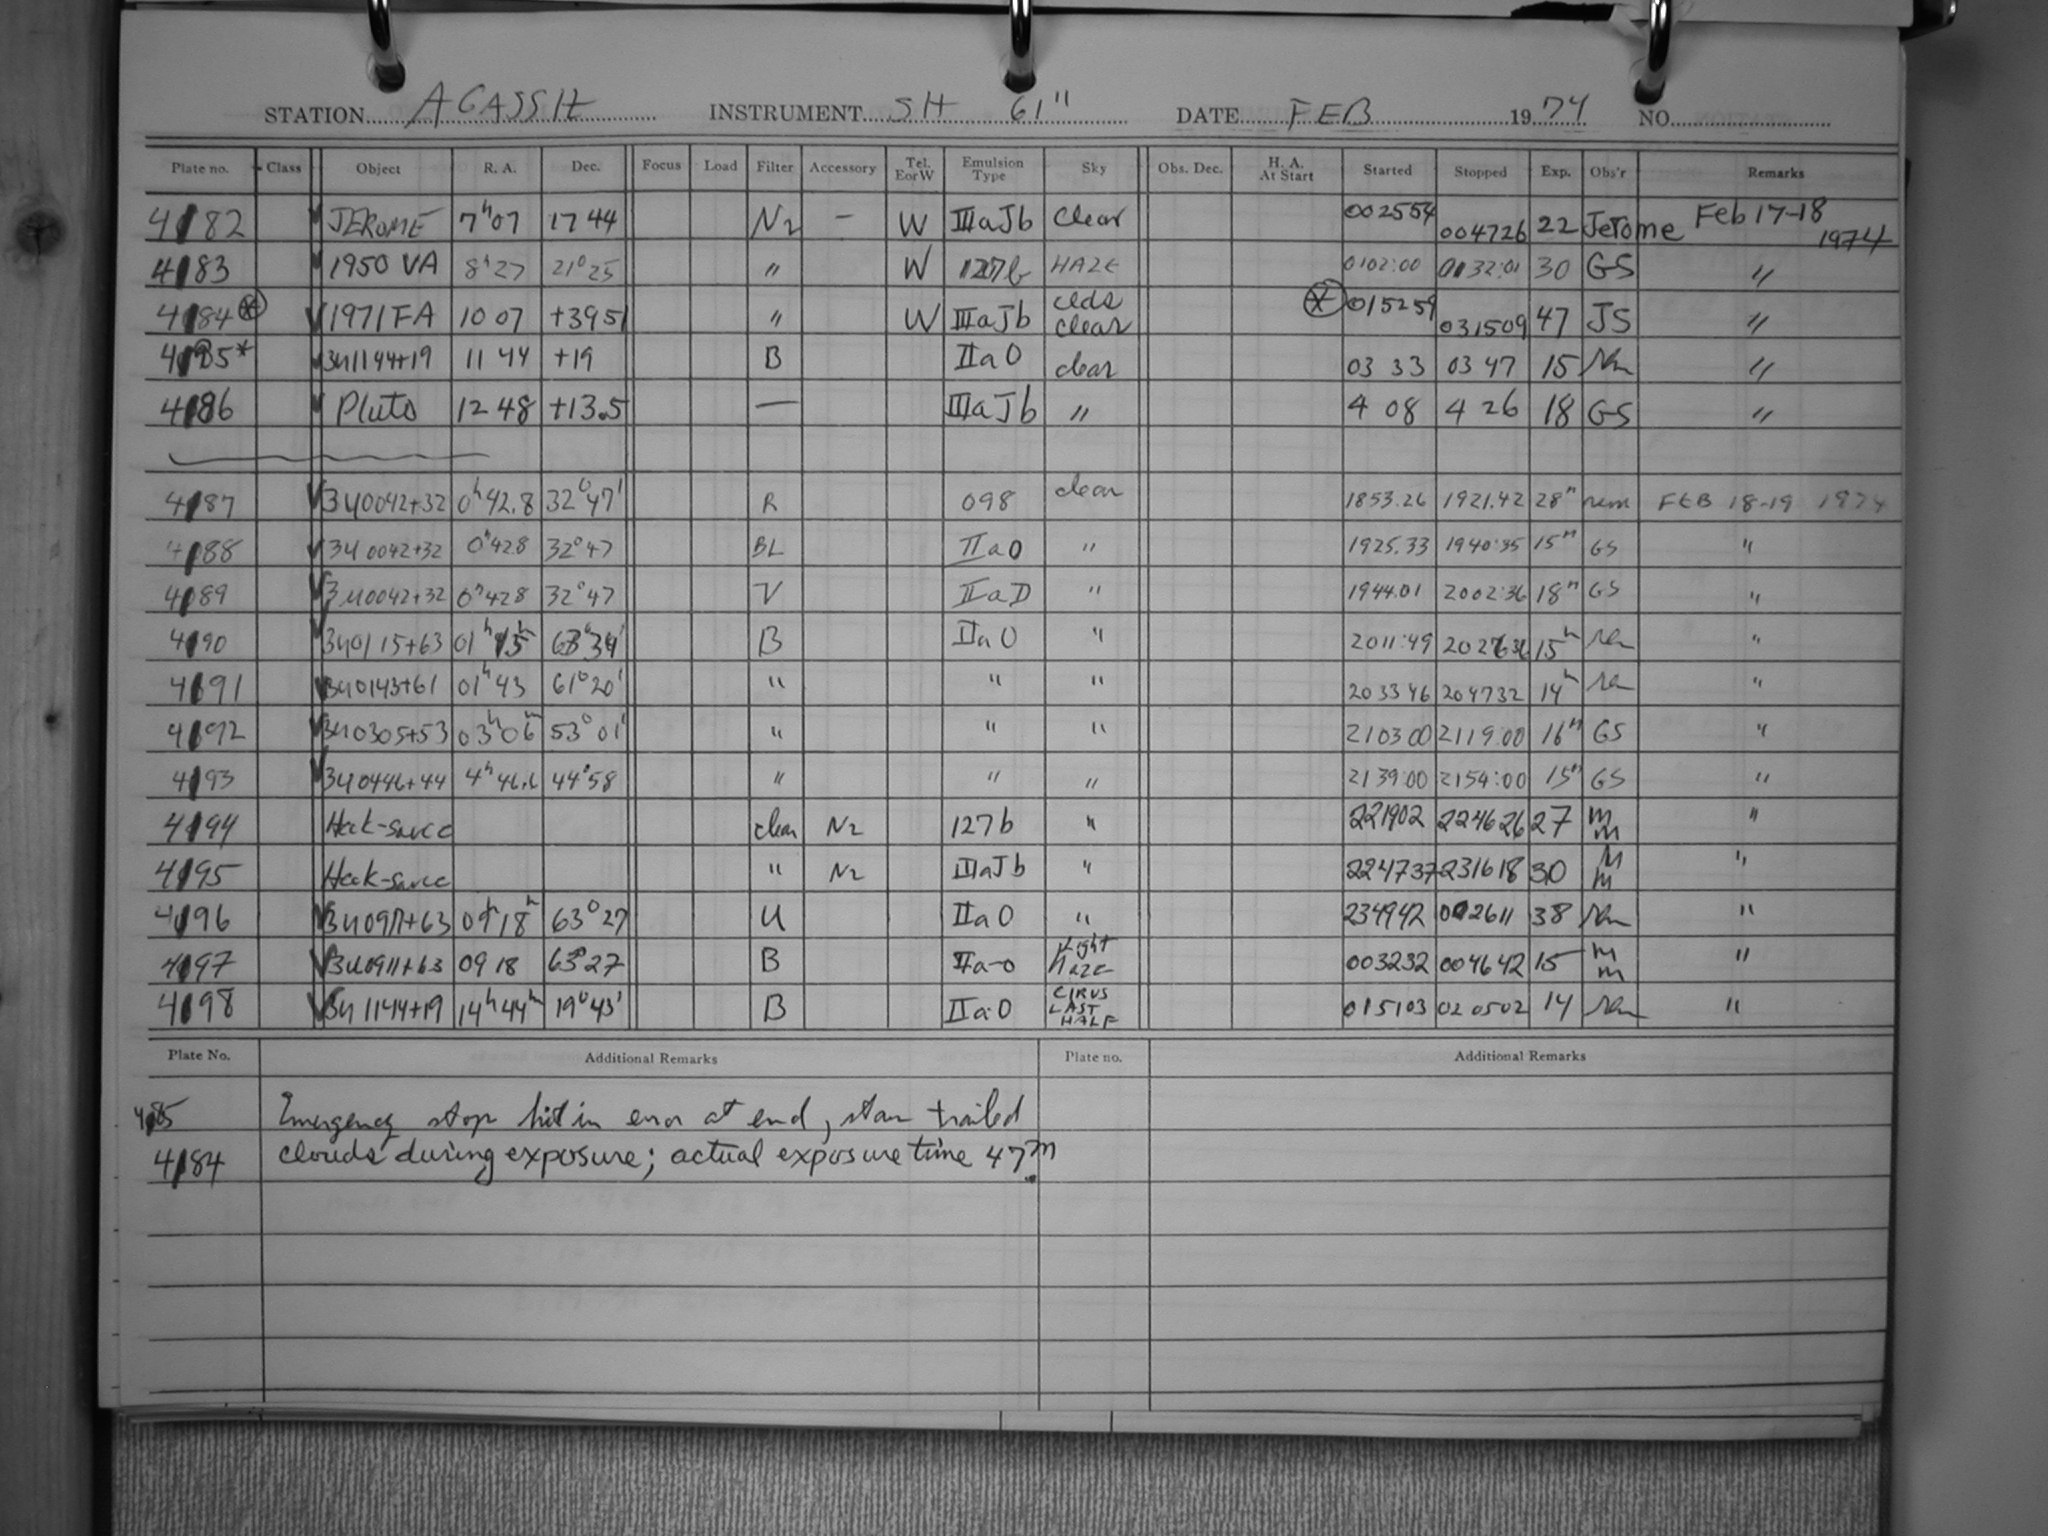 STATION AGASSIZ INSTRUMENT SH 61" DATE FEB 1974 NO.
Plate no. Class Object R. A. Dec. Focus Load Filter Accessory Tel. E or W Emulsion Type Sky Obs. Dec. H. A. At Start Started Stopped Exp. Obs'r Remarks
4182 JEROME 7h07 17 44 N2 - W IIIaJb Clear 002554 004726 22 Jerome Feb 17-18 1974
4183 1950 VA 8h27 21° 25 " W 127b HAZE 0102:00 0132:01 30 GS "
4184* 1971FA 10 07 +3951 " W IIIaJb clds clear * 015259 031509 47 JS "
4185* 3U1144+19 11 44 +19 B IIaO clear 03 33 03 47 15 "
4186 Pluto 12 48 +13.5 — IIIaJb " 4 08 4 26 18 GS "
4187 3U0042+32 0h42.8 32°47' R 098 clear 1853.26 1921.42 28m rem FEB 18-19 1974
4188 3U0042+32 0h428 32°47 BL IIaO " 1925.33 1940:35 15m GS "
4189 3U0042+32 0h428 32°47 V IIaD " 1944.01 2002:36 18m GS "
4190 3U0115+63 01h15m 63°34' B IIaO " 2011:49 15m "
4191 3U0143+61 01h43 61°20' " " " 203346 204732 14m "
4192 3U0305+53 03h06m 53°01' " " " 210300 2119:00 16m GS "
4193 3U0446+44 4h46.6 44°58 " " " 2139:00 2154:00 15m GS "
4194 clear N2 127b " 221902 224626 27 m m "
4195 " N2 IIIaJb " 224737 231618 30 M m "
4196 3U0911+63 09h18m 63°27 U IIaO " 234942 002611 38 "
4197 3U0911+63 09 18 63°27 B IIa-O Light HAZE 003232 004642 15 m m "
4198 3U1144+19 14h44m 19°43' B IIaO CIRUS LAST HALF 015103 020502 14 "
Plate No. Additional Remarks Plate no. Additional Remarks
4185 Emergency stop hit in error at end, star trailed
4184 clouds during exposure; actual exposure time 47m.